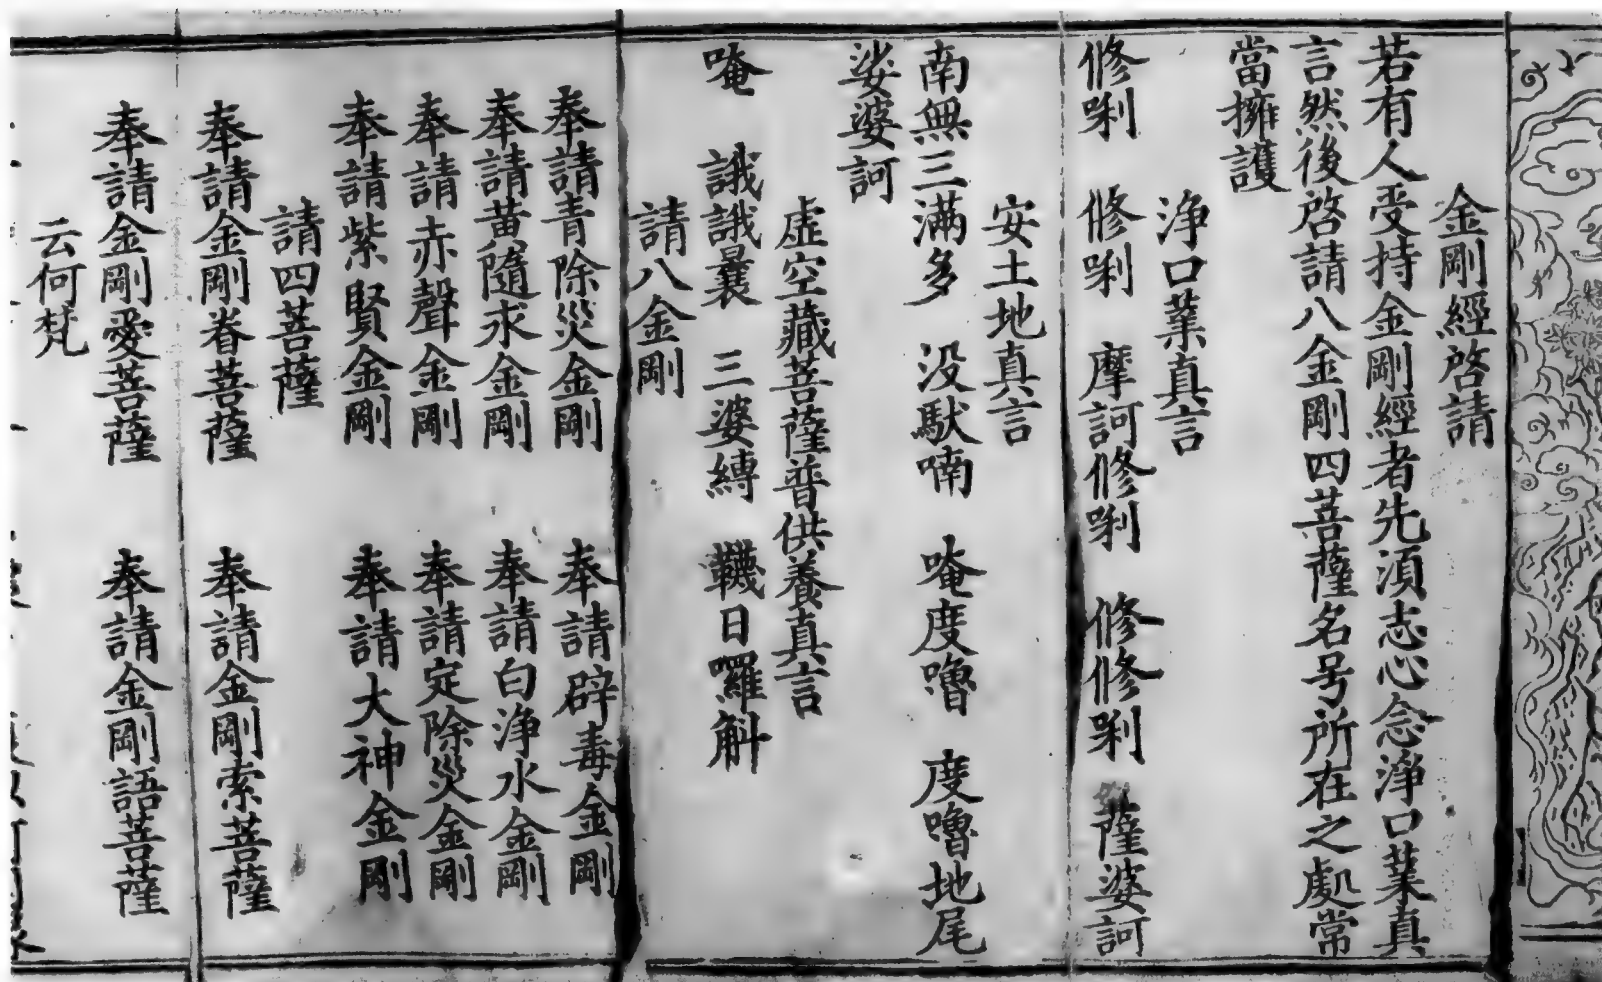 金剛經啓請
若有人受持金剛經者先湏志心念淨口業真
言然後啓請八金剛四菩薩名号所在之處常
當擁護
淨口業真言
修唎　修唎　摩訶修唎　修修唎　薩婆訶
安土地真言
南無三滿多　没馱喃　唵度嚕　度嚕地尾
娑婆訶
虛空藏菩薩普供養真言
唵　誐誐曩　三婆縛　韈日囉斛
請八金剛
奉請青除災金剛　奉請辟毒金剛
奉請黃隨求金剛　奉請白淨水金剛
奉請赤聲金剛　奉請定除災金剛
奉請紫賢金剛　奉請大神金剛
請四菩薩
奉請金剛眷菩薩　奉請金剛索菩薩
奉請金剛愛菩薩　奉請金剛語菩薩
云何梵